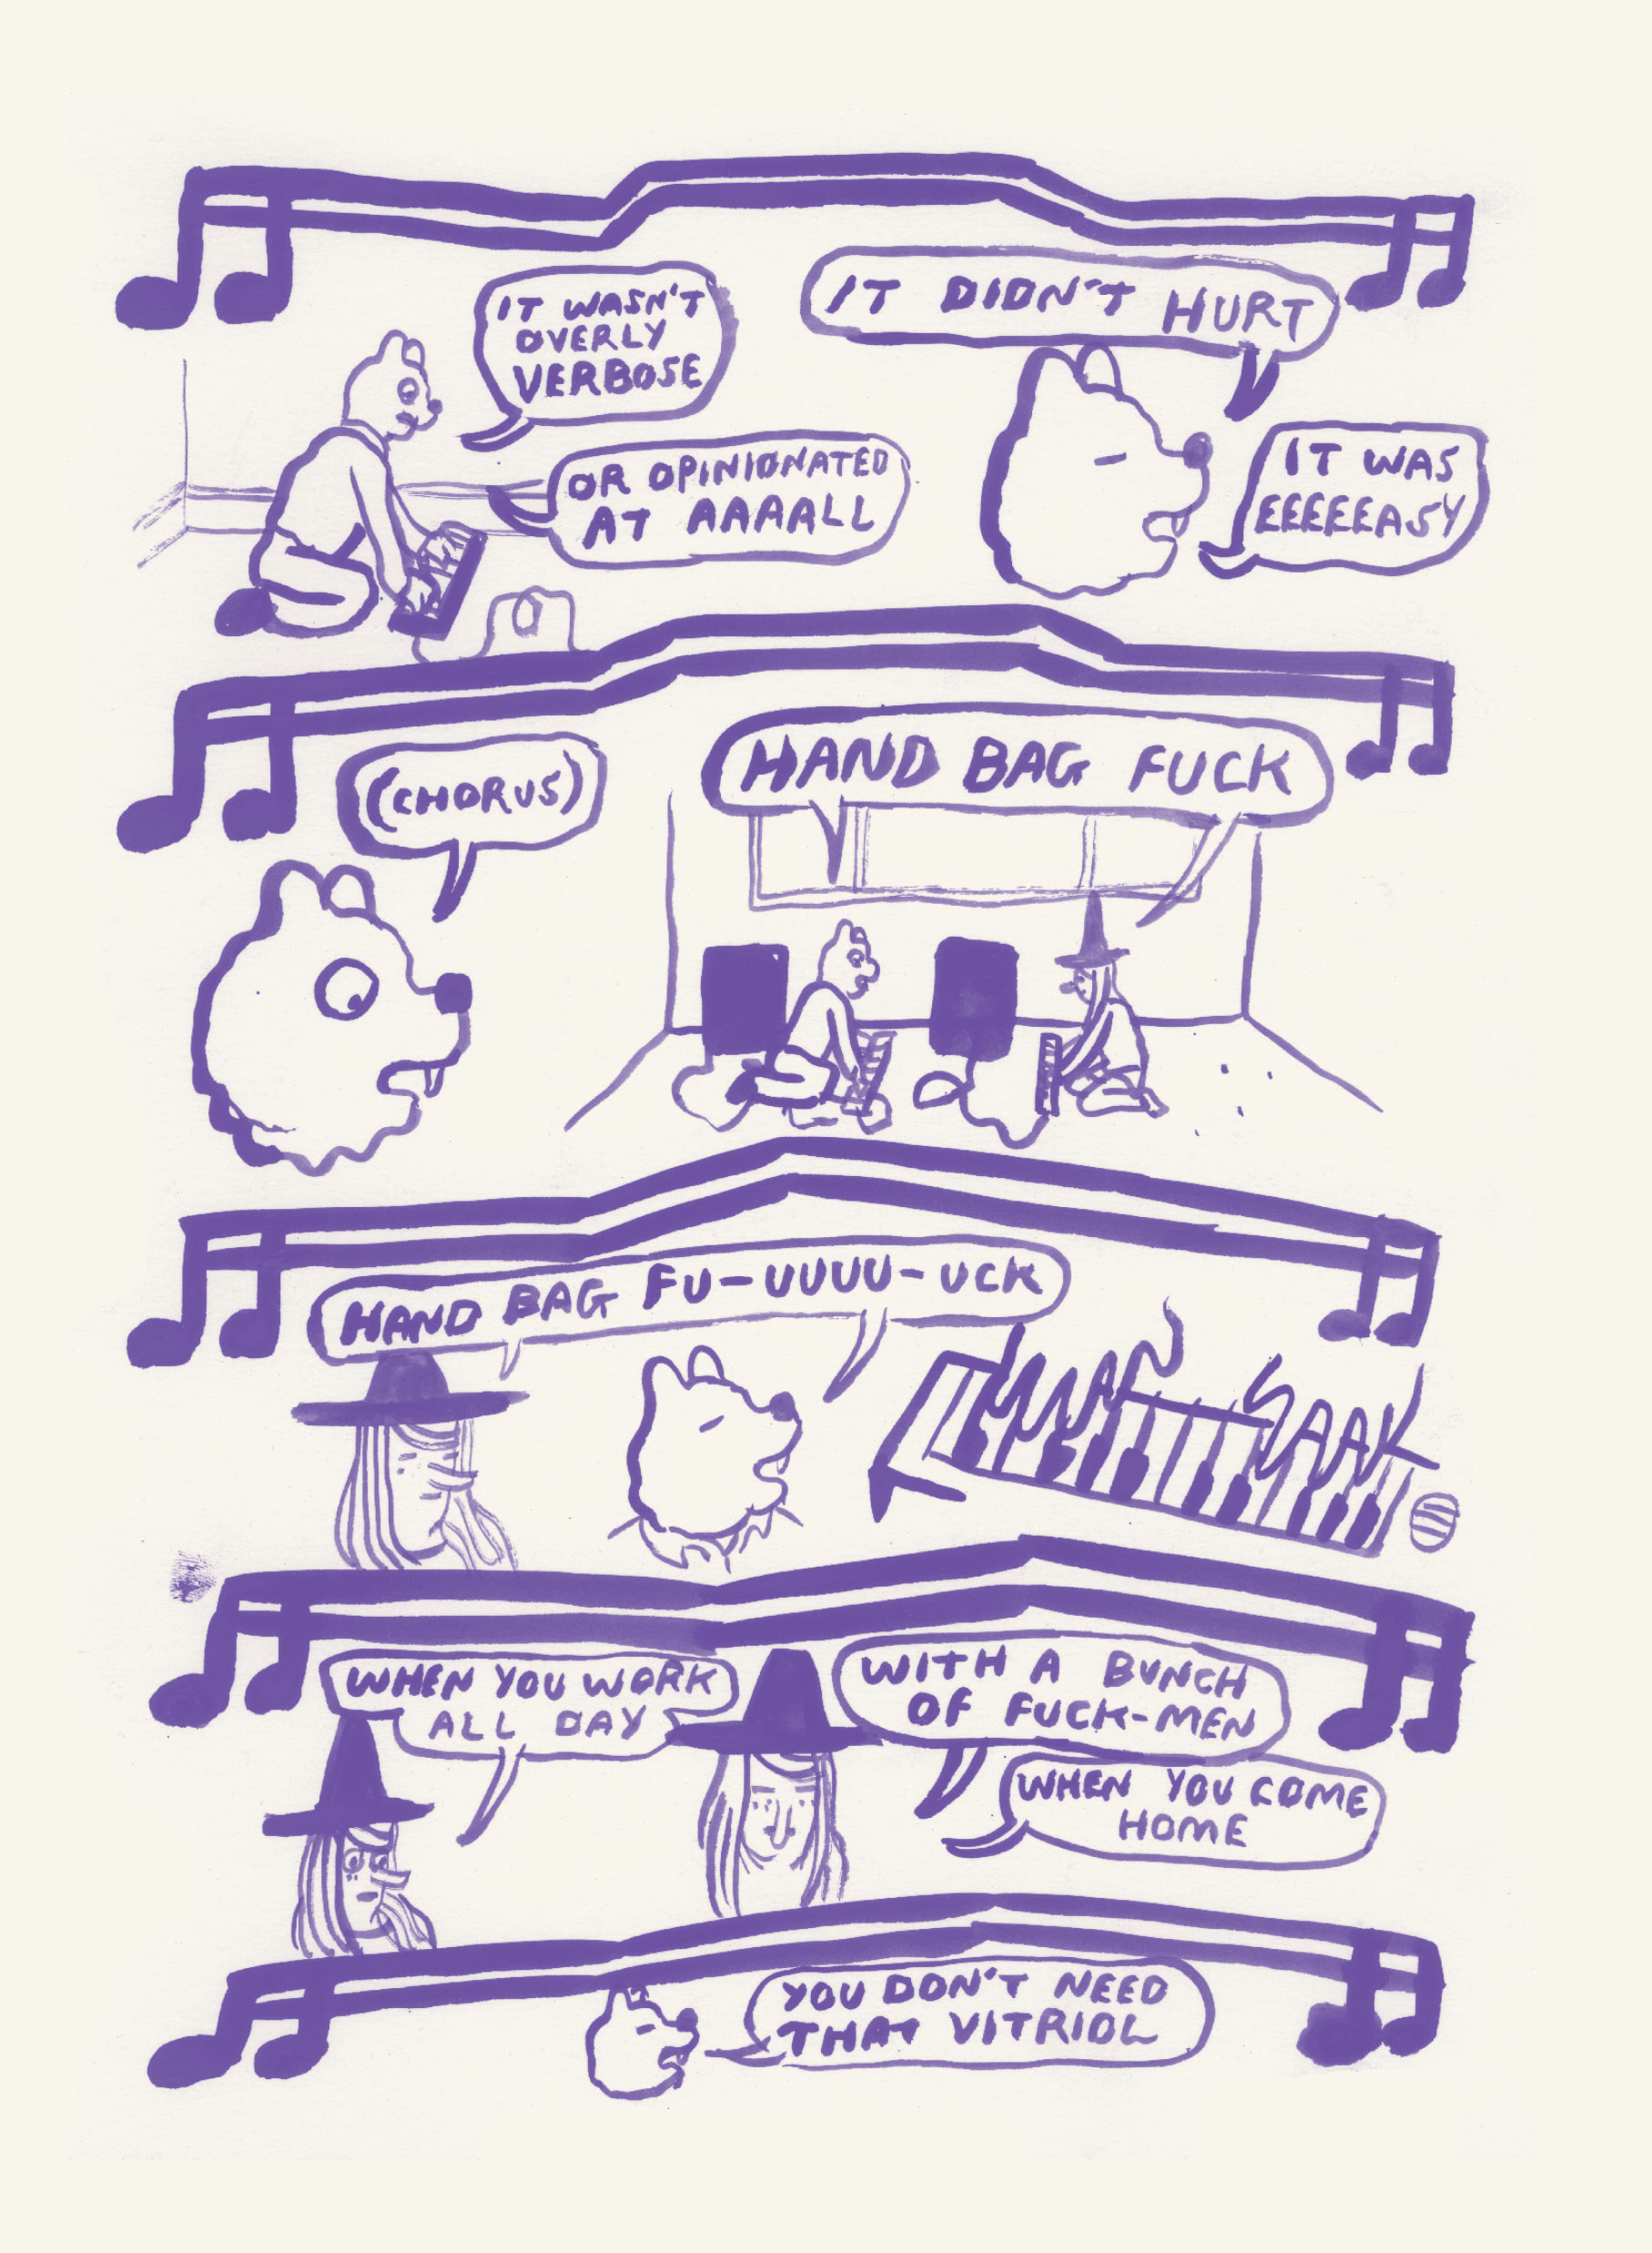 IT WASN'T
OVERLY
VERBOSE
OR OPINIONATED
AT AAAALL
IT DIDN'T HURT
IT WAS
EEEEEASY
(CHORUS)
HAND BAG FUCK
HAND BAG FU-UUUU-UCK
WHEN YOU WORK
ALL DAY
WITH A BUNCH
OF FUCK-MEN
WHEN YOU COME
HOME
YOU DON'T NEED
THAT VITRIOL